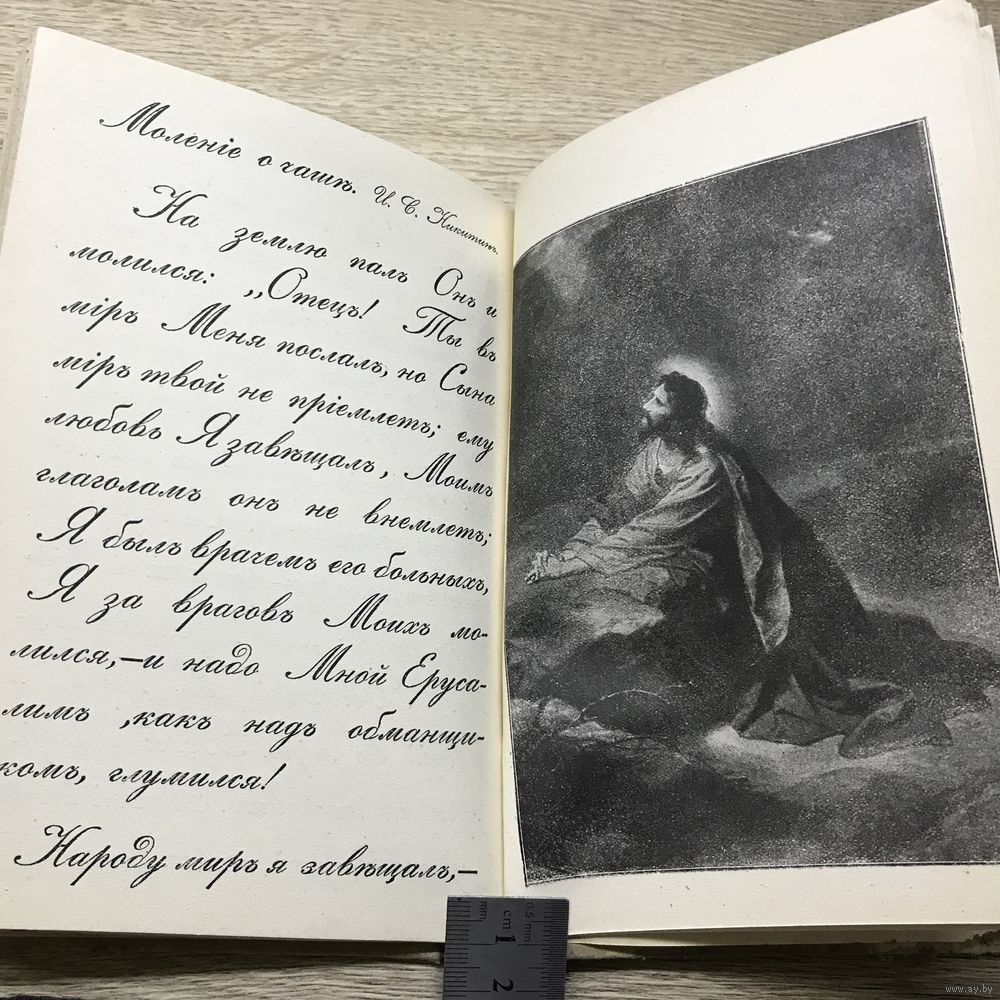 Моленіе о чашѣ. И. С. Никитинъ.
На землю палъ Онъ и
молился: „Отецъ! Ты въ
міръ Меня послалъ, но Сына
міръ твой не пріемлетъ; ему
любовь Я завѣщалъ, Моимъ
глаголамъ онъ не внемлетъ;
Я былъ врачемъ его больныхъ,
Я за враговъ Моихъ мо-
лился,—и надо Мной Еруса-
лимъ ,какъ надъ обманщи-
комъ, глумился!
Народу миръ я завѣщалъ,—
mm cm 0.5 mm
1
2
www.ay.by